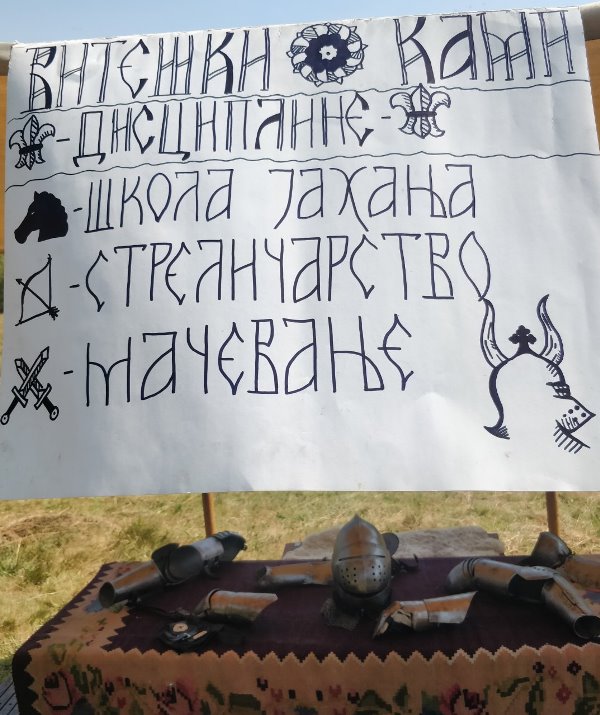 ВИТЕШКИ КАМП
-ДИСЦИПЛИНЕ-
-ШКОЛА ЈАХАЊА
-СТРЕЛИЧАРСТВО
-МАЧЕВАЊЕ